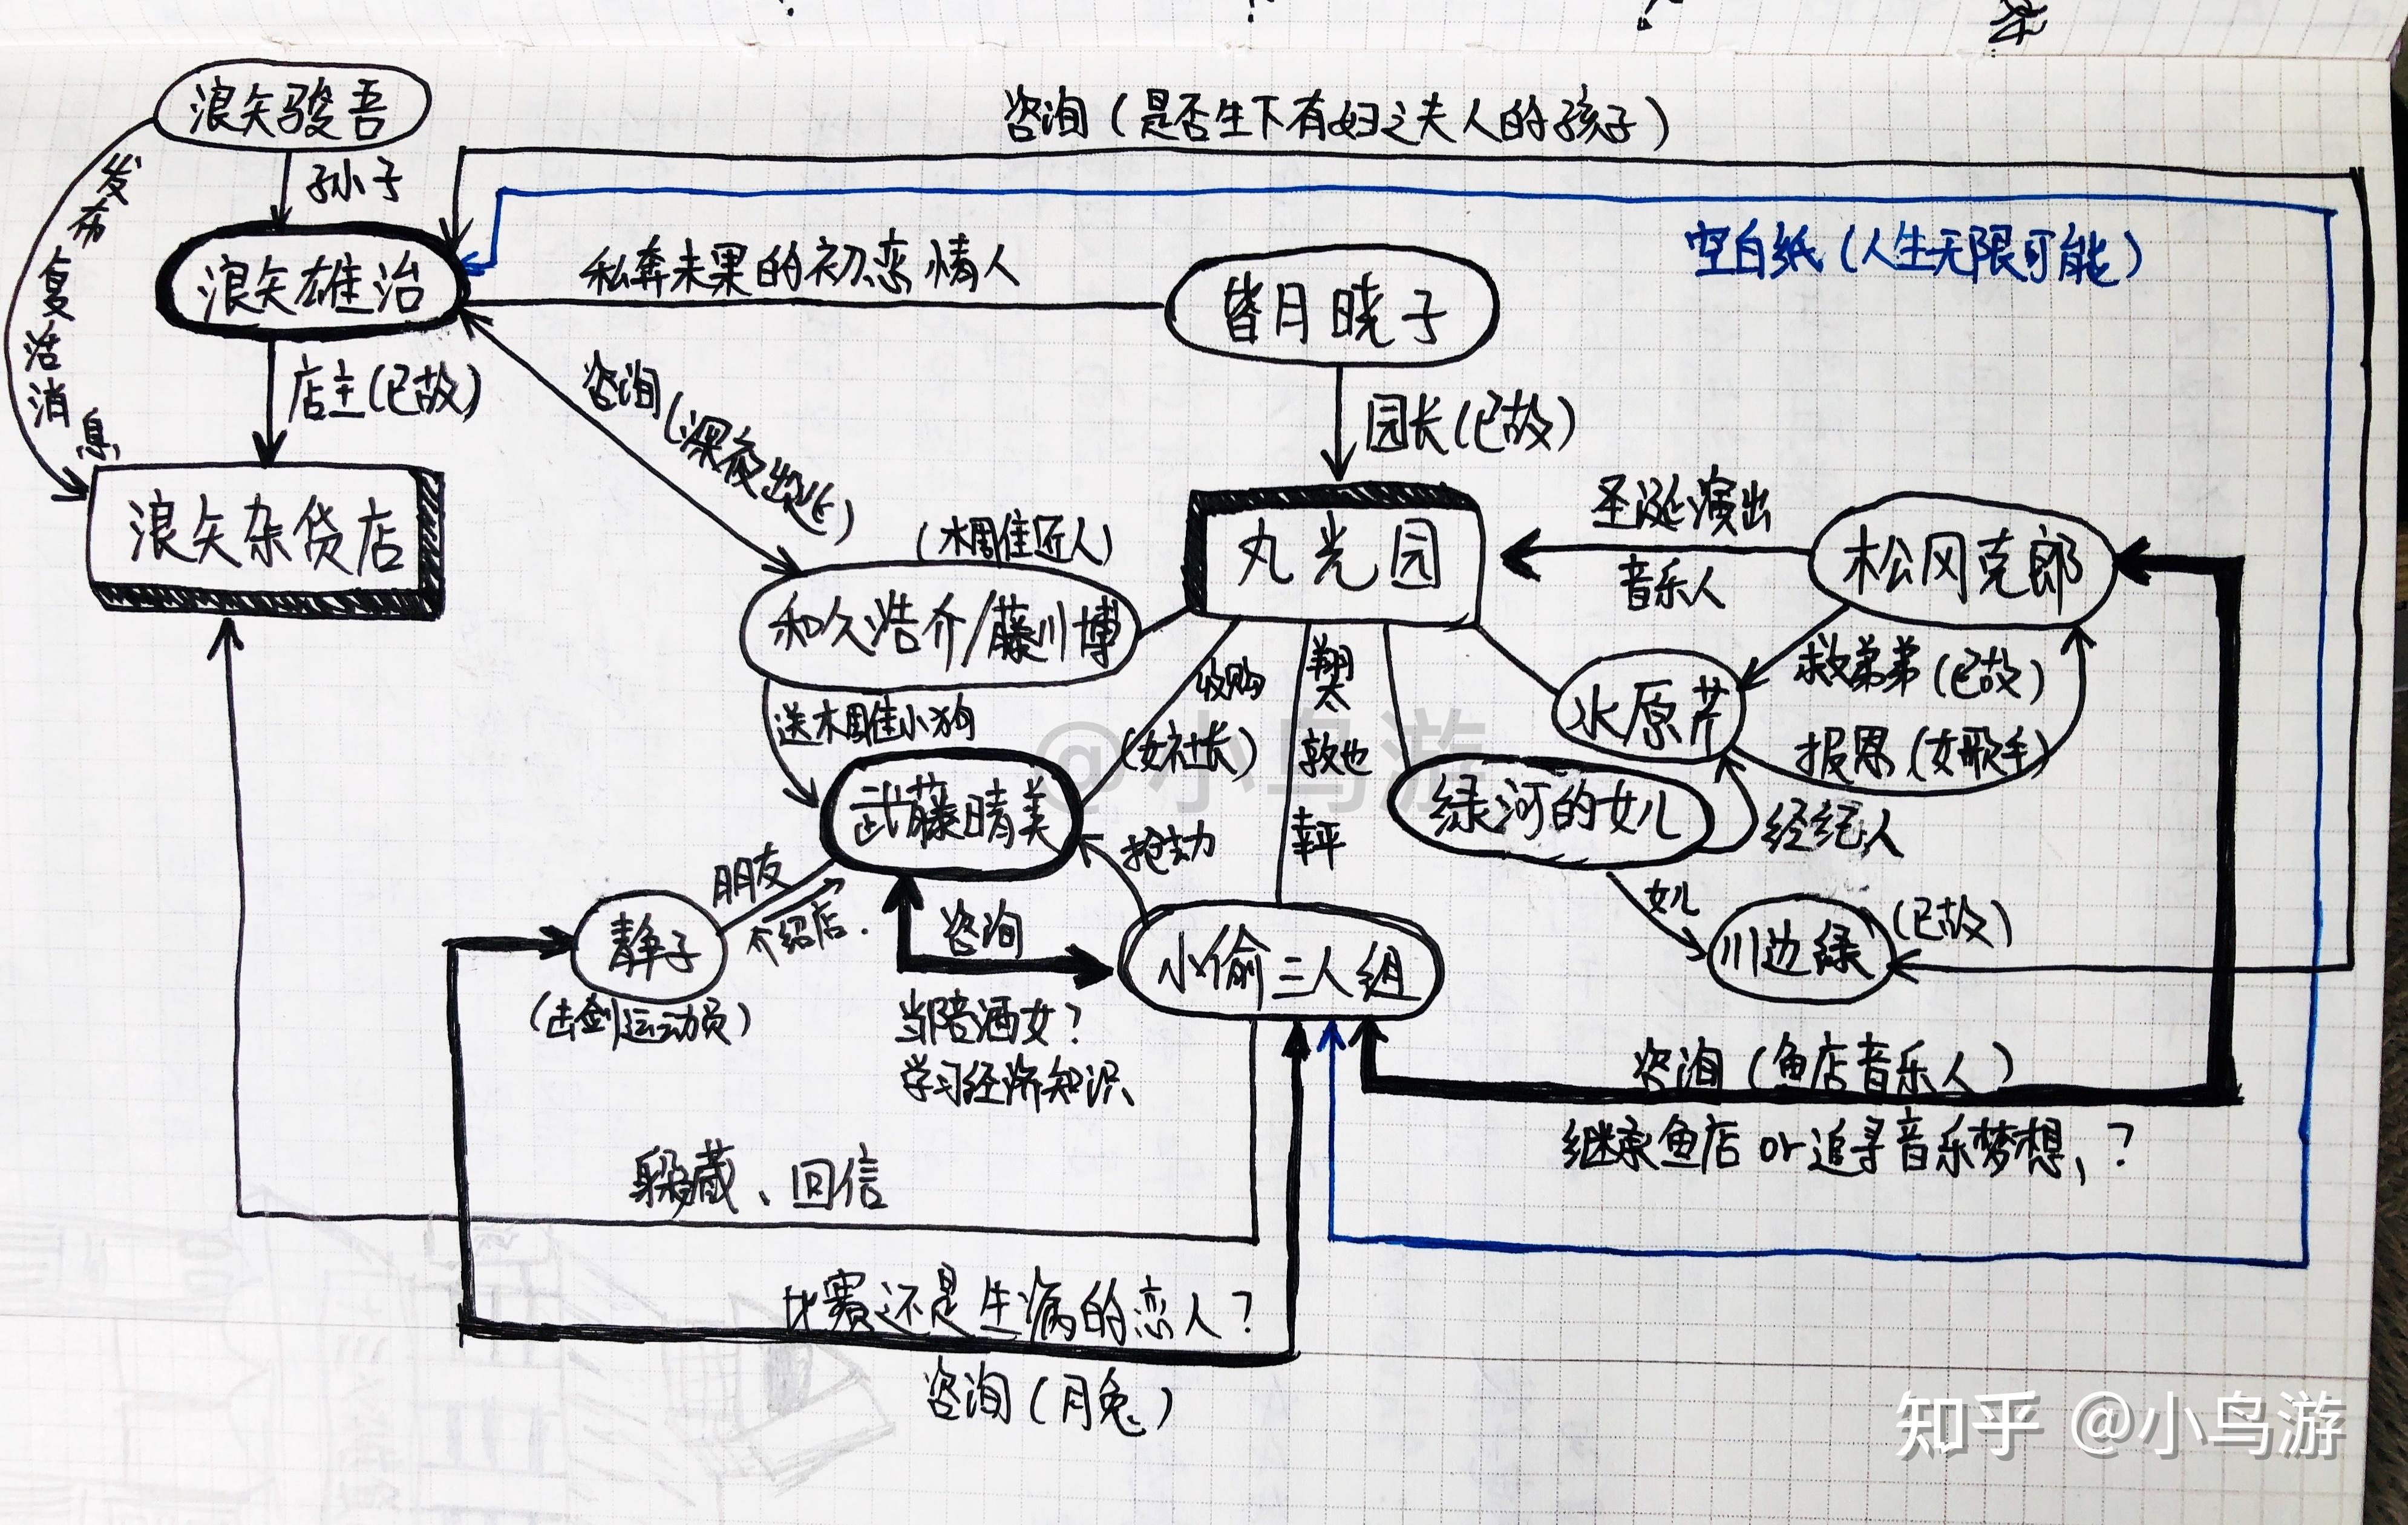 浪矢骏吾
咨询（是否生下有妇之夫人的孩子）
发布复活消息
孙子
浪矢雄治
私奔未果的初恋情人
皆月晓子
空白纸（人生无限可能）
店主(已故)
咨询(深夜出逃)
园长(已故)
浪矢杂货店
(木雕匠人)
丸光园
圣诞演出
音乐人
松冈克郎
和久浩介/藤川博
收购
(女社长)
翔太
敦也
幸平
水原芹
救弟弟(已故)
报恩(女歌手)
送木雕小狗
武藤晴美
抢劫
绿河的女儿
经纪人
朋友
介绍店.
静子
(击剑运动员)
咨询
当陪酒女?
学习经济知识
小偷三人组
女儿
川边绿
(已故)
咨询（鱼店音乐人）
继承鱼店 or 追寻音乐梦想、?
躲藏、回信
比赛还是生病的恋人?
咨询(月兔)
@小鸟游
知乎 @小鸟游